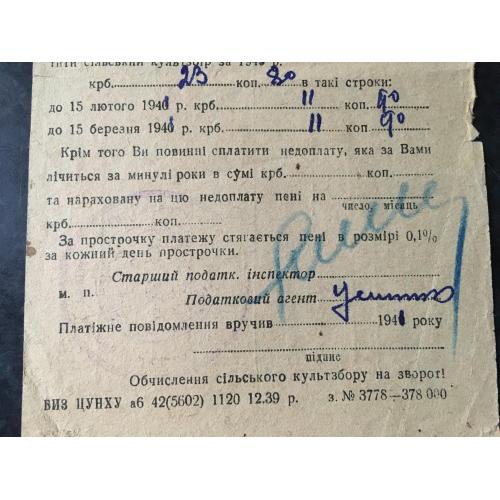 тити сільський культзбір за 1940 р.
крб. 23 коп. 80 в такі строки:
до 15 лютого 1941 р. крб. 11 коп. 90
до 15 березня 1941 р. крб. 11 коп. 90
Крім того Ви повинні сплатити недоплату, яка за Вами
лічиться за минулі роки в сумі крб. коп.
та нараховану на цю недоплату пені на
число, місяць
крб. коп.
За прострочку платежу стягається пені в розмірі 0,1%
за кожний день прострочки.
Старший податк. інспектор
м. п.
Податковий агент
Платіжне повідомлення вручив 1941 року
підпис
Обчислення сільського культзбору на звороті
БИЗ ЦУНХУ аб 42(5602) 1120 12.39 р. з. № 3778—378 000